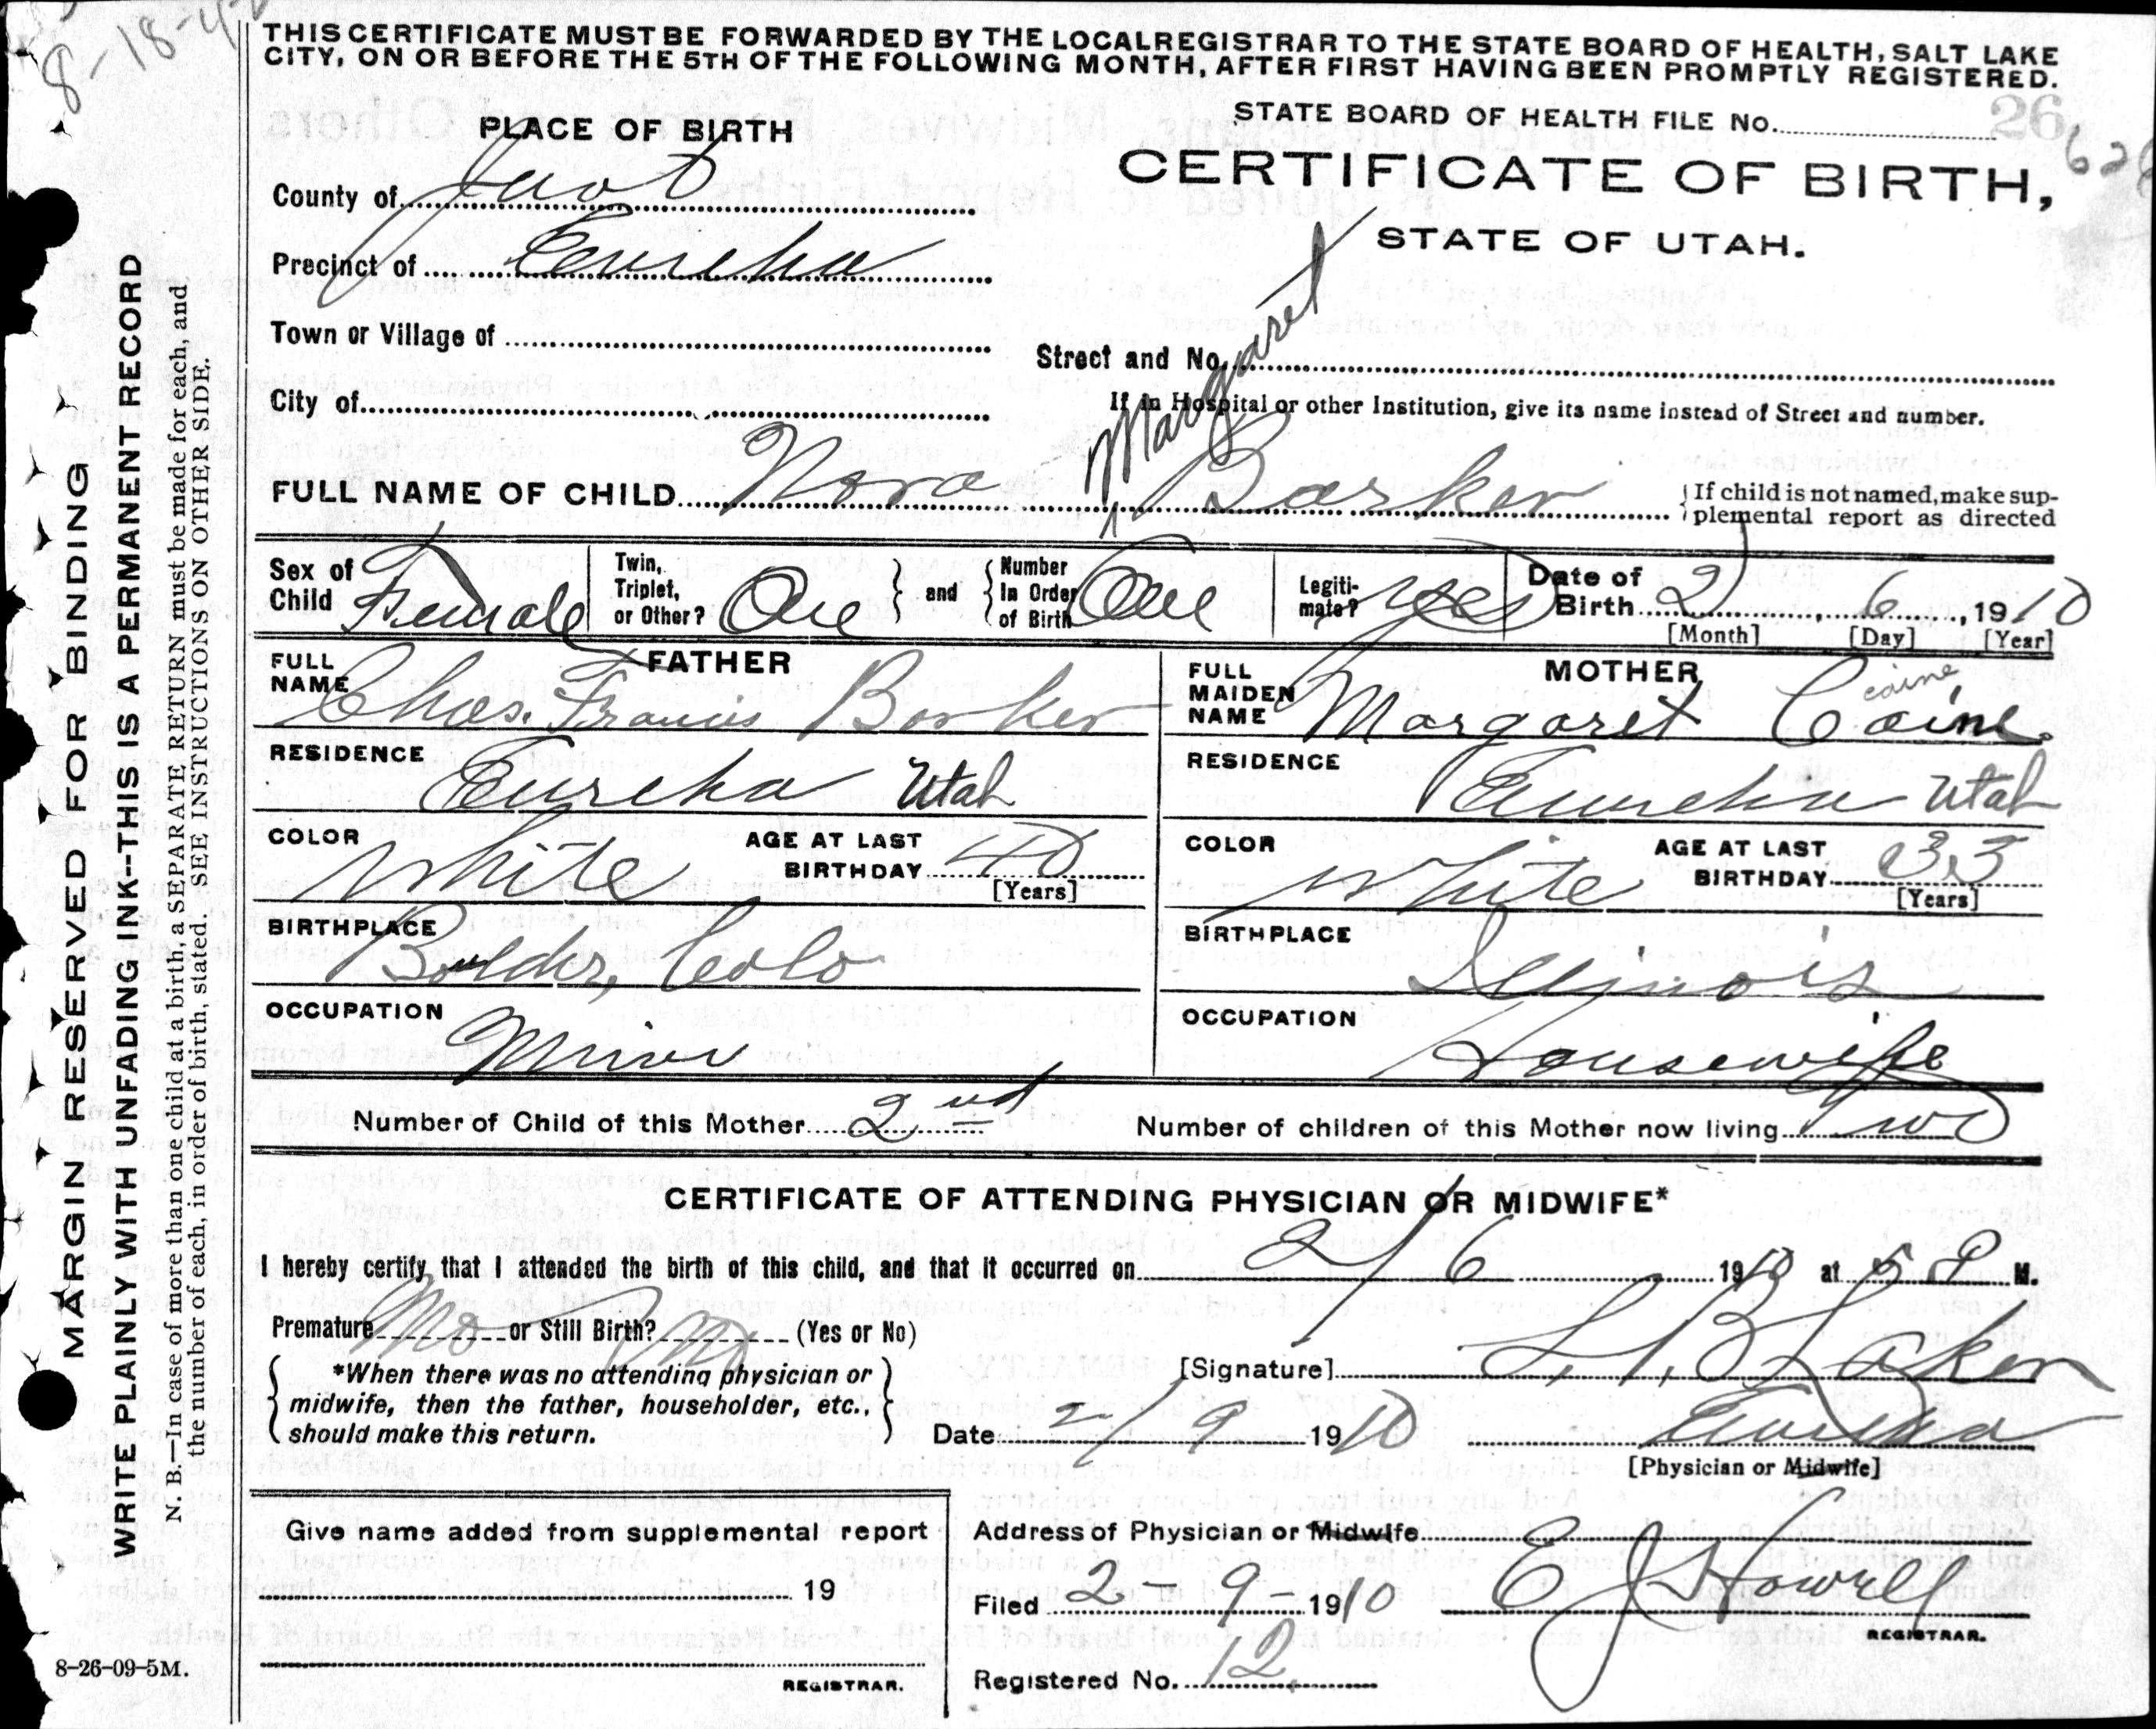 8-18-4
THIS CERTIFICATE MUST BE FORWARDED BY THE LOCAL REGISTRAR TO THE STATE BOARD OF HEALTH, SALT LAKE
CITY, ON OR BEFORE THE 5TH OF THE FOLLOWING MONTH, AFTER FIRST HAVING BEEN PROMPTLY REGISTERED.
STATE BOARD OF HEALTH FILE No. 26
628
PLACE OF BIRTH
CERTIFICATE OF BIRTH,
STATE OF UTAH.
County of Juab
Precinct of Eureka
Town or Village of
Street and No.
City of
If in Hospital or other Institution, give its name instead of Street and number.
Margaret
FULL NAME OF CHILD Nora ^ Barker
{If child is not named, make sup-
plemental report as directed
Sex of Child Female
Twin, Triplet, or Other? One } and { Number In Order of Birth One
Legiti-mate? Yes
Date of Birth 2, 6, 1910
[Month] [Day] [Year]
FATHER
FULL NAME Chas. Francis Barker
RESIDENCE Eureka Utah
COLOR White
AGE AT LAST BIRTHDAY 40
[Years]
BIRTHPLACE Boulder, Colo
OCCUPATION Miner
MOTHER
caine
FULL MAIDEN NAME Margaret Caine.
RESIDENCE Eureka Utah
COLOR White
AGE AT LAST BIRTHDAY 33
[Years]
BIRTHPLACE Illinois
OCCUPATION Housewife
Number of Child of this Mother 2nd
Number of children of this Mother now living Two
CERTIFICATE OF ATTENDING PHYSICIAN OR MIDWIFE*
I hereby certify that I attended the birth of this child, and that it occurred on 2/6 1910 at 5 P M.
Premature No or Still Birth? No (Yes or No)
{ *When there was no attending physician or
midwife, then the father, householder, etc.,
should make this return. }
[Signature] L. B. Laker
Date 2/9 1910
Eureka
[Physician or Midwife]
Give name added from supplemental report
19
REGISTRAR.
Address of Physician or Midwife
Filed 2-9-1910
E J Howell
REGISTRAR.
Registered No. 12
8-26-09-5M.
MARGIN RESERVED FOR BINDING
WRITE PLAINLY WITH UNFADING INK--THIS IS A PERMANENT RECORD
N. B.—In case of more than one child at a birth, a SEPARATE RETURN must be made for each, and
the number of each, in order of birth, stated. SEE INSTRUCTIONS ON OTHER SIDE.